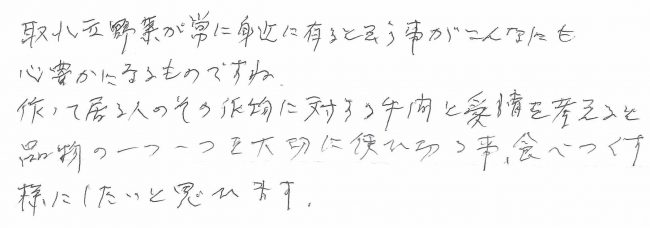 取れ立野菜が常に身近に有ると云う事がこんなにも
心豊かになるものですね.
作って居る人のその作物に対する手間と愛情を考えると
品物の一つ一つを大切に使ひ切る事、食べつくす
様にしたいと思ひます.